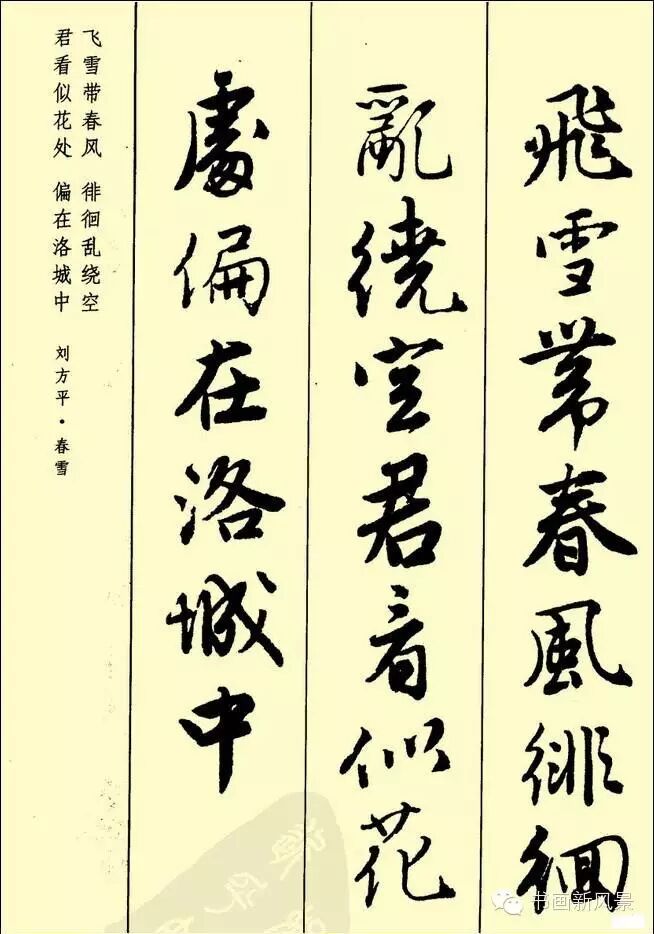 飛雪帶春風徘徊
亂繞空君看似花
處偏在洛城中
飞雪带春风 徘徊乱绕空
君看似花处 偏在洛城中
刘方平·春雪
书画新风景